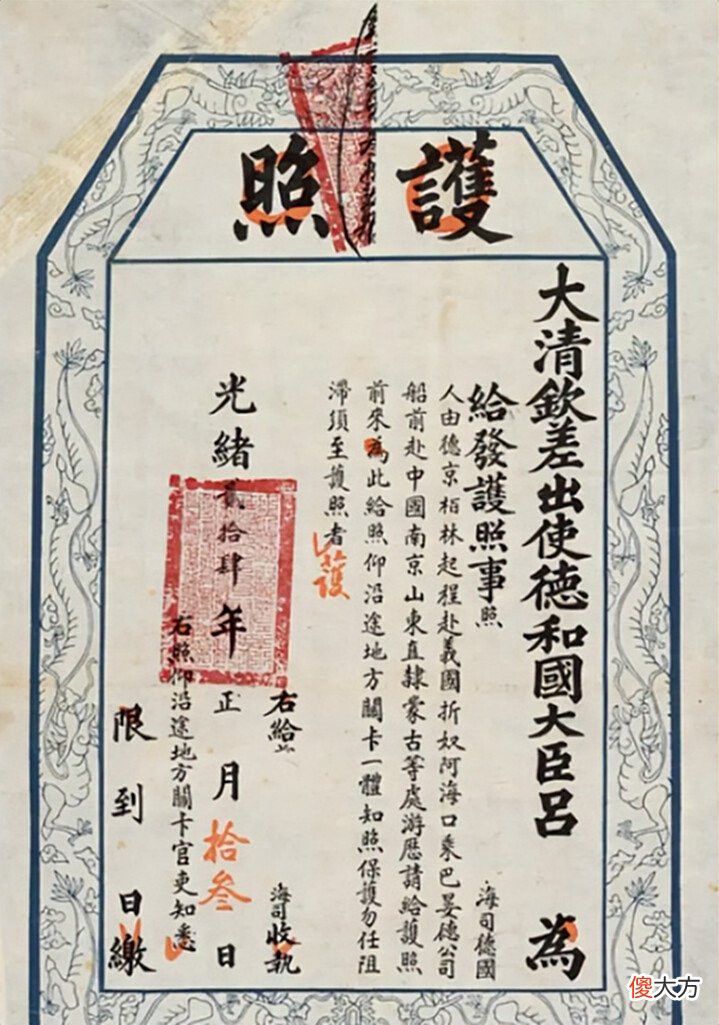 護照
大清欽差出使德和國大臣呂 為
給發護照事照 海司德國
人由德京栢林起程赴義國折奴阿海口乘巴晏德公司
船前赴中國南京山東直隸蒙古等處游歷請給護照
前來為此給照仰沿途地方關卡一體知照保護勿任阻
滯須至護照者
護
右給 海司收執
光緒貳拾肆年正月拾叁日
右照仰沿途地方關卡官吏知悉
限到 日繳
傻大方